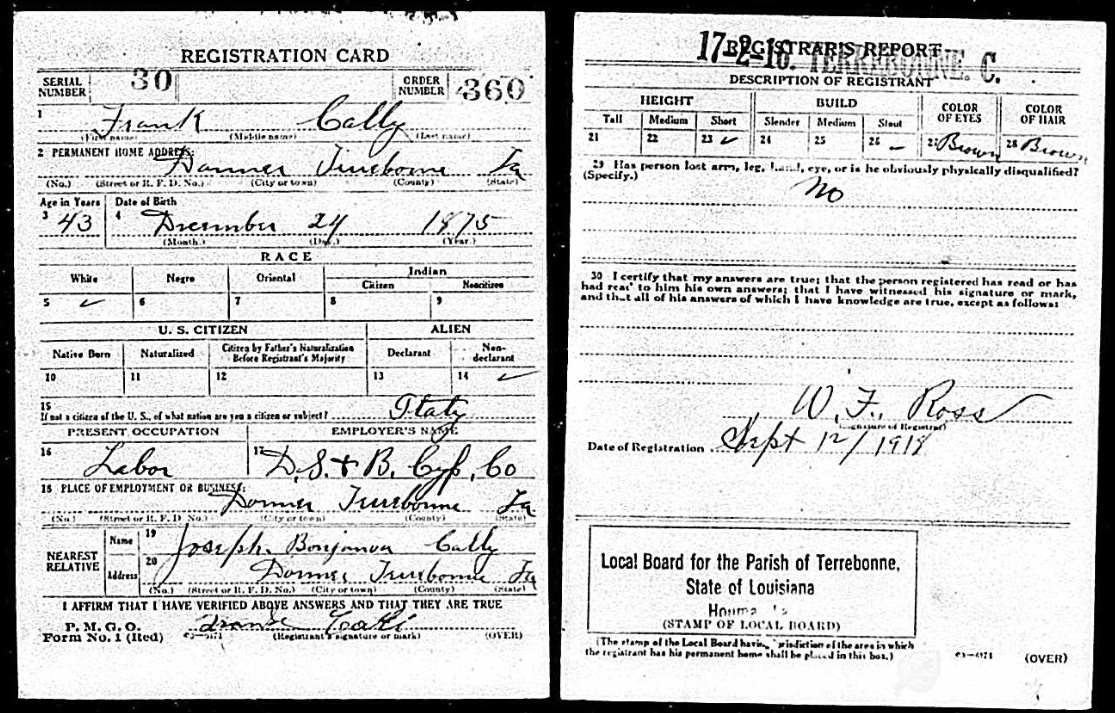 REGISTRATION CARD
SERIAL NUMBER 30 ORDER NUMBER 360
1 Frank Cally
(First name) (Middle name) (Last name)
2 PERMANENT HOME ADDRESS:
Donner Terrebonne La
(No.) (Street or R. F. D. No.) (City or town) (County) (State)
Age in Years Date of Birth
3 43 4 December 24 1875
(Month.) (Day.) (Year.)
RACE
White Negro Oriental Indian
Citizen Noncitizen
5 ✓ 6 7 8 9
U. S. CITIZEN ALIEN
Native Born Naturalized Citizen by Father's Naturalization Before Registrant's Majority Declarant Non-declarant
10 11 12 13 14 ✓
15
If not a citizen of the U. S., of what nation are you a citizen or subject? Italy
PRESENT OCCUPATION EMPLOYER'S NAME
16 Labor 17 D. S. & B. Cyp. Co
18 PLACE OF EMPLOYMENT OR BUSINESS:
Donner Terrebonne La
(No.) (Street or R. F. D. No.) (City or town) (County) (State)
NEAREST RELATIVE
Name 19 Joseph Cally
Address 20 Donner Terrebonne La
(No.) (Street or R. F. D. No.) (City or town) (County) (State)
I AFFIRM THAT I HAVE VERIFIED ABOVE ANSWERS AND THAT THEY ARE TRUE
P. M. G. O.
Form No. 1 (Red) 03-6171 (Registrant's signature or mark) (OVER)
17-2-16. TERREBONNE. C.
REGISTRAR'S REPORT
DESCRIPTION OF REGISTRANT
HEIGHT BUILD COLOR OF EYES COLOR OF HAIR
Tall Medium Short Slender Medium Stout
21 22 23 ✓ 24 25 26 27 Brown 28 Brown
29 Has person lost arm, leg, hand, eye, or is he obviously physically disqualified?
(Specify.) No
30 I certify that my answers are true; that the person registered has read or has
had read to him his own answers; that I have witnessed his signature or mark,
and that all of his answers of which I have knowledge are true, except as follows:
W. F. Ross
(Signature of Registrar)
Date of Registration Sept 12/1918
Local Board for the Parish of Terrebonne,
State of Louisiana
Houma La
(STAMP OF LOCAL BOARD)
(The stamp of the Local Board having jurisdiction of the area in which
the registrant has his permanent home shall be placed in this box.)
03-6171 (OVER)